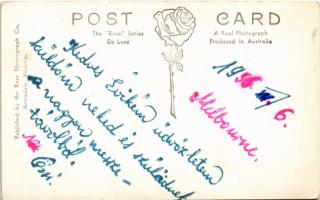 POST CARD
The "Rose" Series
De Luxe
A Real Photograph
Produced in Australia
Published by the Rose Stereograph Co.
Armadale, Victoria.
1956 III/6.
Melbourne.
Kedves Évikém üdvözletem
küldöm neked és szüleidnek
a nagyon messze-
távolból